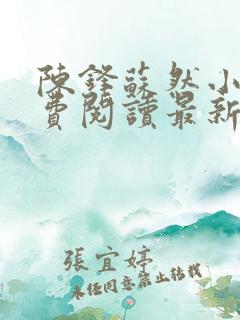 陳鋒蘇然小
費閱讀最新
張宜婷
未經同意禁止轉載